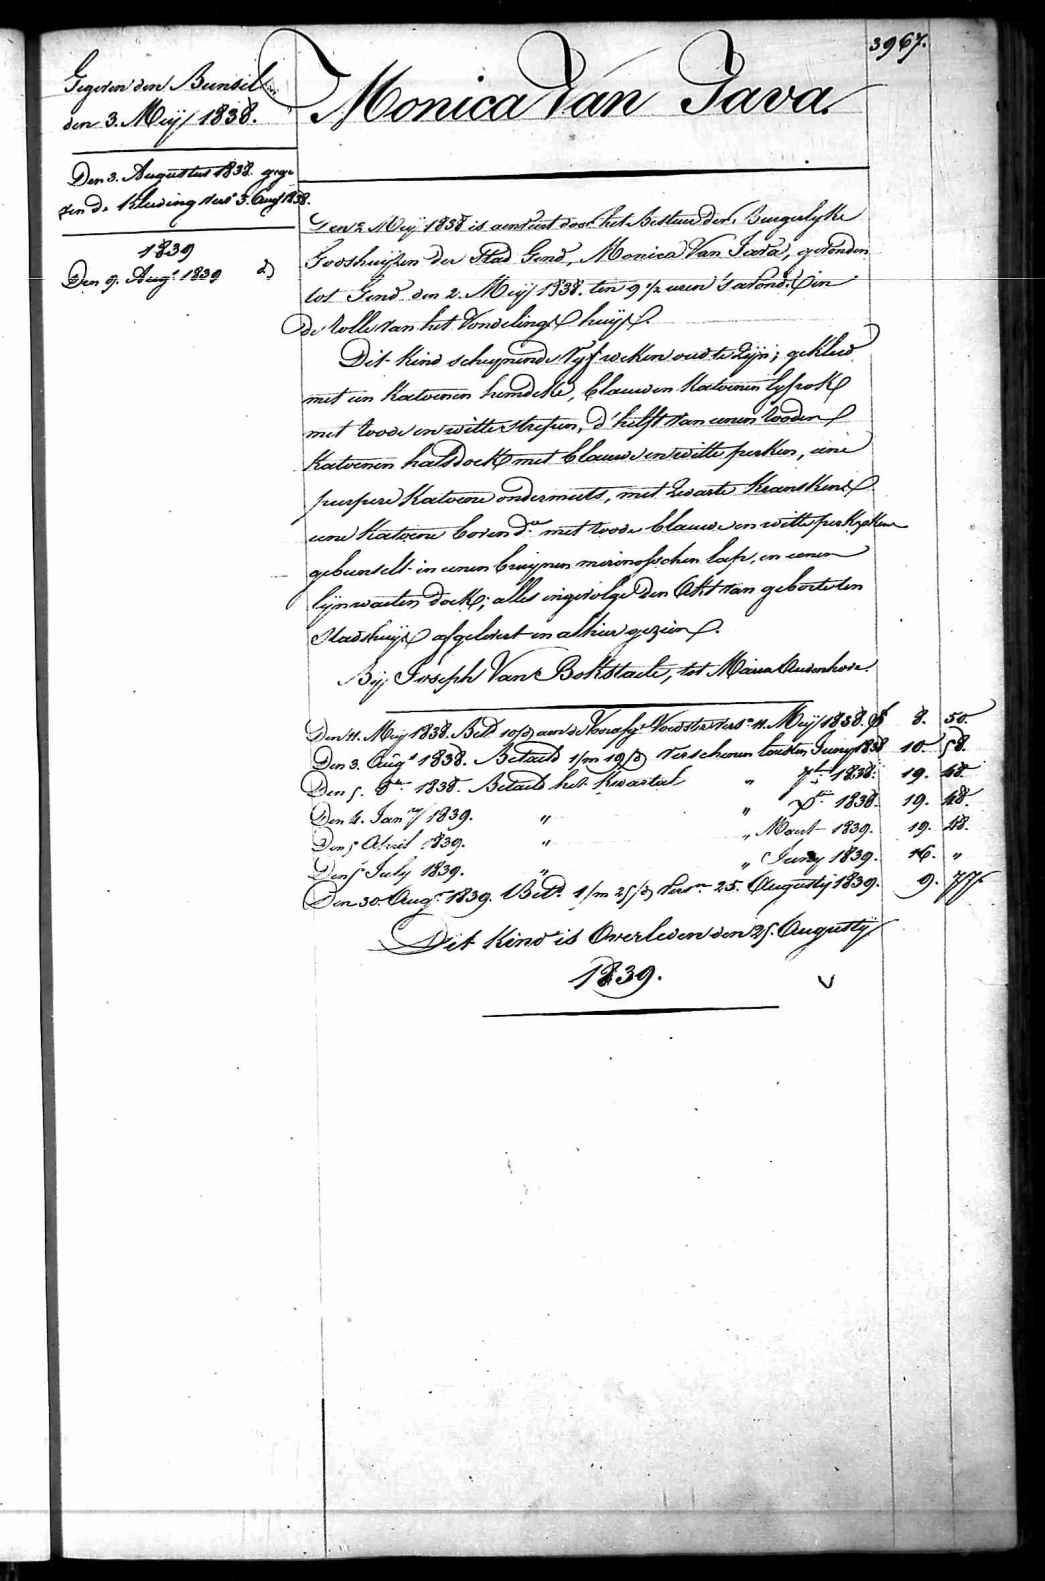 3967.
Gegeven den Bundel
den 3. Meij 1838.
Den 3. Augustus 1838. gege-
ven de Kleeding vers. 3. Aug 1838.
1839
Den 9. Aug.t 1839
Monica Van Java.
Den 2 Meij 1838 is aenveert door het Bestuur der Burgerlyke
Godshuijzen der Stad Gend, Monica Van Java, gevonden
tot Gend den 2. Meij 1838. ten 9 1/2 uren 's avonds in
de rolle van het Vondelings huijs.
Dit kind schynende vyf weken oud te zijn; gekleed
met een katoenen hemdeke, blauwen katoenen lyfrok
met roode en witte strepen, d'helft van eenen rooden
katoenen halsdoek met blauwe en witte perken, eene
purpere katoene ondermuts, met zwarte kranskens
eene katoene boven d.e met roode blauwe en witte perkxkens
gebunselt in eenen bruynen merinosschen lap, en eenen
lynwaeten doek; alles ingevolge den Akt van geboorte ten
Stadshuijs afgelevert en alhier gezien.
Bij Joseph Van Bokstaele, tot Maria Audenhove.
Den 11. Meij 1838. Bet.d 10/d aen de Voedster vers.n 11. Meij 1838. 8. 50.
Den 3. Aug.t 1838. Betaeld 1/m 19/d verschenen lesten Juny 1838 10. 58.
Den 5. 8.ber 1838. Betaeld het kwartael " 7.ber 1838. 19. 48.
Den 4. Jan.ry 1839. " " X.ber 1838. 19. 48.
Den 5 April 1839. " " Maert 1839. 19. 48.
Den 5 July 1839. " " Juny 1839. 16. "
Den 30. Aug.t 1839. Bet.d 1/m 25/d vers.n 25. Augustij 1839. 9. 77.
Dit Kind is Overleden den 25. Augustij
1839.